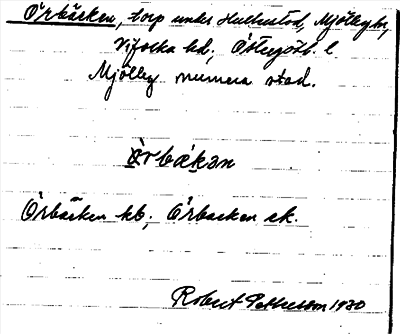 Örbäcken, torp under Hulterstad, Mjölby kn,
Vifolka hd, Östergötl. l
Mjölby numera stad.
Örbäkən
Örbäcken kb; Örbacken ek.
Robert Pettersson 1930